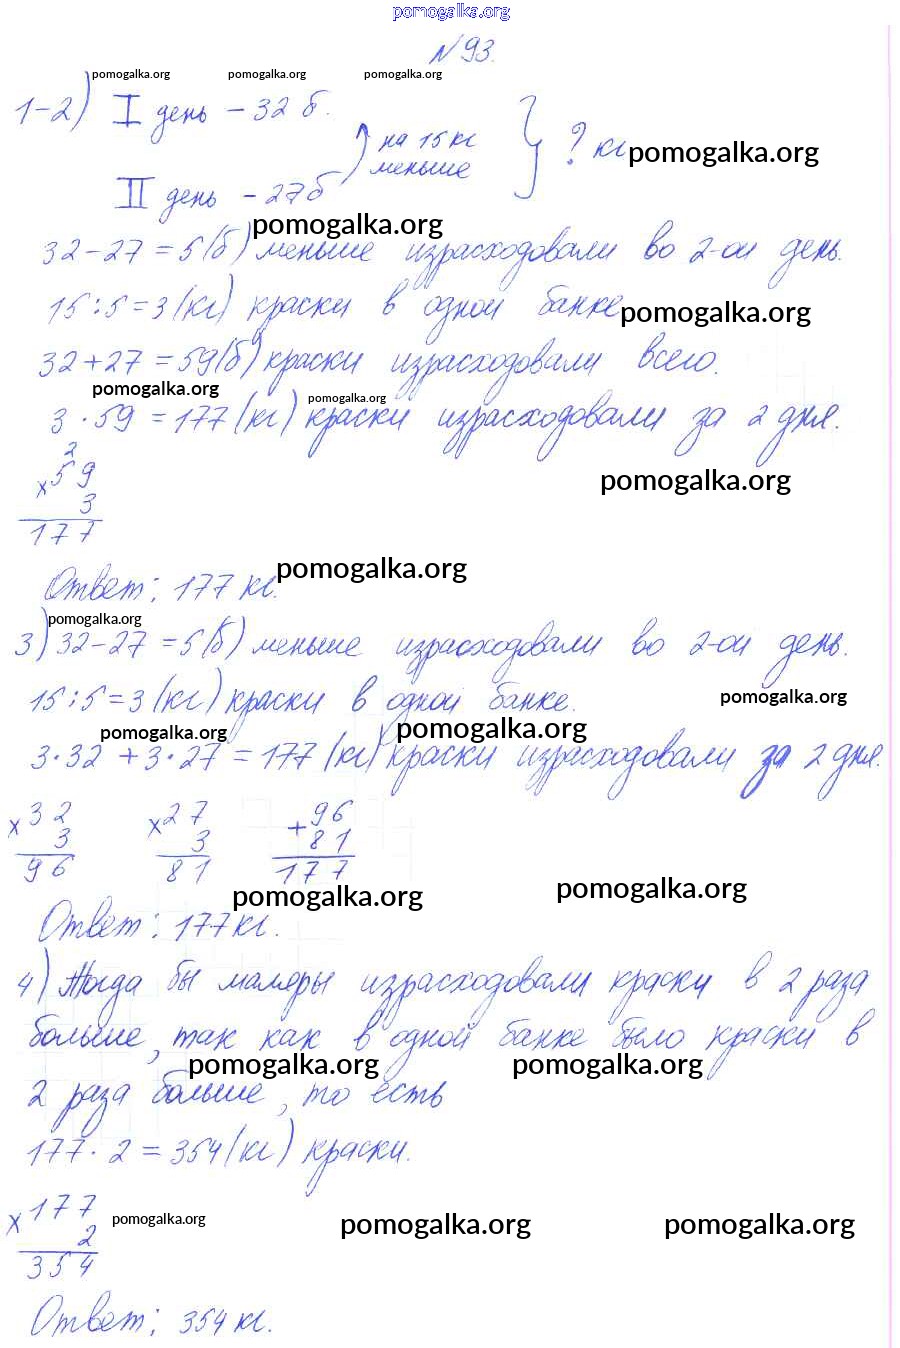 pomogalka.org
№93.
pomogalka.org pomogalka.org pomogalka.org
1-2) I день – 32 б.
на 15 кг
меньше
? кг pomogalka.org
II день – 27б
pomogalka.org
32-27=5(б) меньше израсходовали во 2-ой день.
15:5=3(кг) краски в одной банке
pomogalka.org
32+27=59(б) краски израсходовали всего.
pomogalka.org pomogalka.org
3·59=177(кг) краски израсходовали за 2 дня.
2
×59
3
177
pomogalka.org
Ответ: 177 кг.
pomogalka.org
pomogalka.org
3) 32-27=5(б) меньше израсходовали во 2-ой день.
15:5=3(кг) краски в одной банке.
pomogalka.org
pomogalka.org pomogalka.org
3·32+3·27=177(кг) краски израсходовали за 2 дня.
×32 ×27 +96
3 3 81
96 81 177
pomogalka.org pomogalka.org
Ответ: 177кг.
4) Тогда бы маляры израсходовали краски в 2 раза
больше, так как в одной банке было краски в
pomogalka.org pomogalka.org
2 раза больше, то есть
177·2=354(кг) краски.
×177
2
354
pomogalka.org pomogalka.org pomogalka.org
Ответ: 354кг.